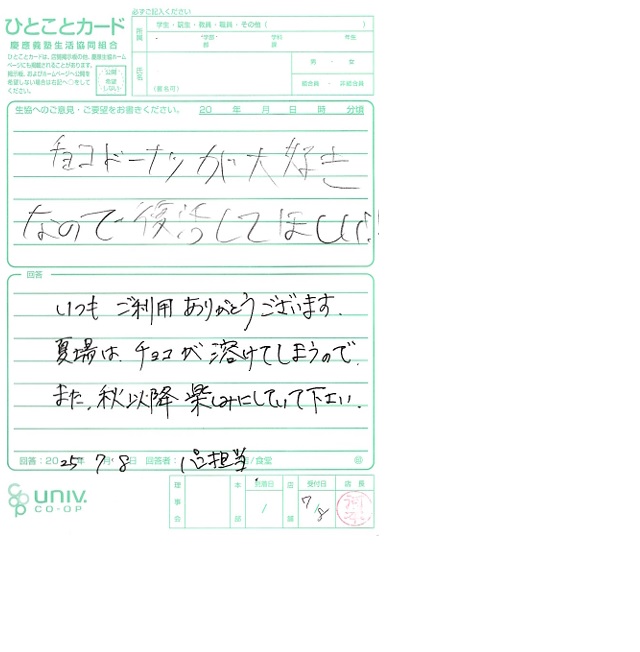 ひとことカード
慶應義塾生活協同組合
ひとことカードは、店頭掲示板の他、慶應生協ホーム
ページにも掲載されることがあります。
掲示板、およびホームページへ公開を
希望しない場合は右記へ○をして
ください。
公開
希望
しない
必ずご記入ください
所属
学生・院生・教員・職員・その他（ ）
学部 学科 年生
氏名
（匿名可）
男 ・ 女
組合員 ・ 非組合員
生協へのご意見・ご要望をお書きください。 20 年 月 日 時 分頃
チョコドーナツが大好き
なので復活してほしい!
回答
いつも ご利用 ありがとうございます。
夏場は、チョコが溶けてしまうので、
また、秋以降 楽しみにしていて下さい。
回答：2025年 7月 8日 回答者： パン担当 /食堂
UNIV.
CO-OP
理事会
本部
店舗
受付日
7/8
店長